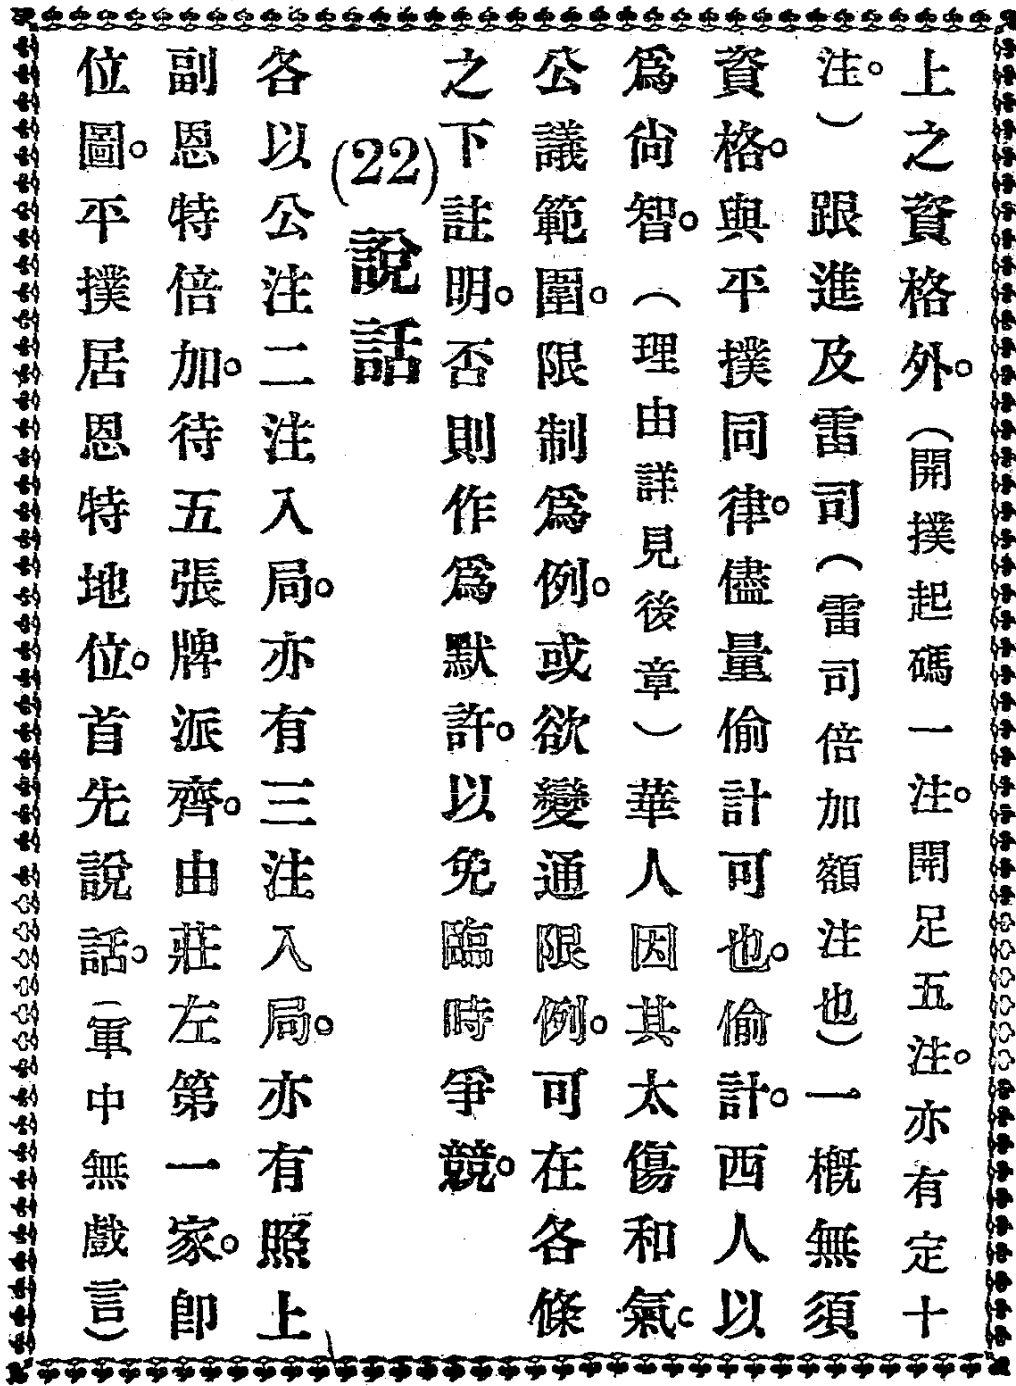 上之資格外。（開撲起碼一注。開足五注。亦有定十
注。）跟進及雷司（雷司倍加額注也）一概無須
資格。與平撲同律。儘量偷計可也。偷計。西人以
爲尙智。（理由詳見後章）華人因其太傷和氣。
公議範圍。限制爲例。或欲變通限例。可在各條
之下註明。否則作爲默許。以免臨時爭競。
(22)說話
各以公注二注入局。亦有三注入局。亦有照上
副恩特倍加。待五張牌派齊。由莊左第一家。卽
位圖。平撲居恩特地位。首先說話。（軍中無戲言）